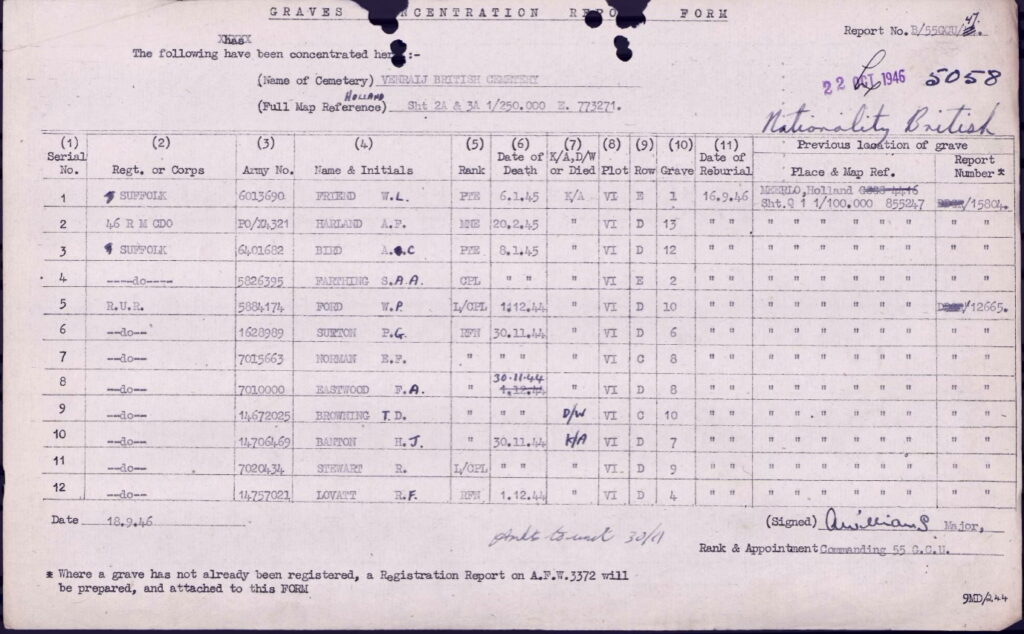 GRAVES CONCENTRATION REPORT FORM
Report No. B/55GCU/ 47.
has
The following have been concentrated here :-
(Name of Cemetery) VENRAIJ BRITISH CEMETERY
22 OCT 1946 5058
HOLLAND
(Full Map Reference) Sht 2A & 3A 1/250.000 E. 773271.
Nationality British
(1) Serial No. (2) Regt. or Corps (3) Army No. (4) Name & Initials (5) Rank (6) Date of Death (7) K/A,D/W or Died (8) Plot (9) Row (10) Grave (11) Date of Reburial Previous location of grave Place & Map Ref. Report Number *
1 SUFFOLK 6013690 FRIEND W.L. PTE 6.1.45 K/A VI E 1 16.9.46 MEERLO, Holland Sht.Q 1 1/100.000 855247 /15804.
2 46 R M CDO PO/X4321 HARLAND A.F. MNE 20.2.45 " VI D 13 " " " " " " " " "
3 SUFFOLK 6401682 BIRD A. C PTE 8.1.45 " VI D 12 " " " " " " " " "
4 ----do---- 5826395 FARTHING S.A.A. CPL " " " VI E 2 " " " " " " " " "
5 R.U.R. 5884174 FORD W.P. L/CPL 1.12.44 " VI D 10 " " " " " " " /12665.
6 --do-- 1628989 SUTTON P.G. RFN 30.11.44 " VI D 6 " " " " " " " " "
7 --do-- 7015663 NORMAN E.F. " " " " VI C 8 " " " " " " " " "
8 --do-- 7010000 EASTWOOD F.A. " 30.11.44 1.12.44 " VI D 8 " " " " " " " " "
9 --do-- 14672025 BROWNING T.D. " " " D/W VI C 10 " " " " " " " " "
10 --do-- 14706469 BANTON H.J. " 30.11.44 K/A VI D 7 " " " " " " " " "
11 --do-- 7020434 STEWART R. L/CPL " " " VI. D 9 " " " " " " " " "
12 --do-- 14757021 LOVATT R.F. RFN 1.12.44 " VI D 4 " " " " " " " " "
Date 18.9.46
(Signed) AWilliams Major,
30/11
Rank & Appointment Commanding 55 G.C.U.
* Where a grave has not already been registered, a Registration Report on A.F.W.3372 will
be prepared, and attached to this FORM
9MD/244